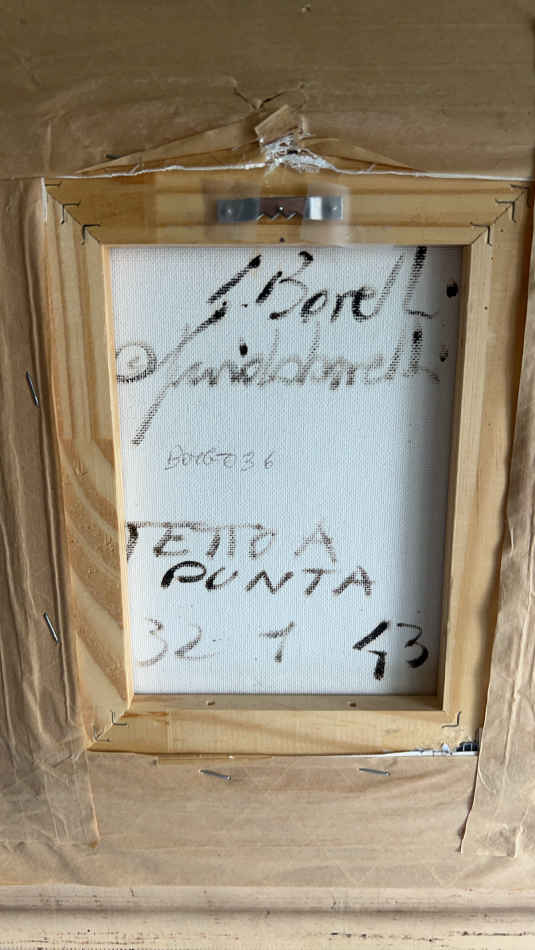 G. Borelli
© guidoborelli
BORGO 36
TETTO A
PUNTA
32 1 43